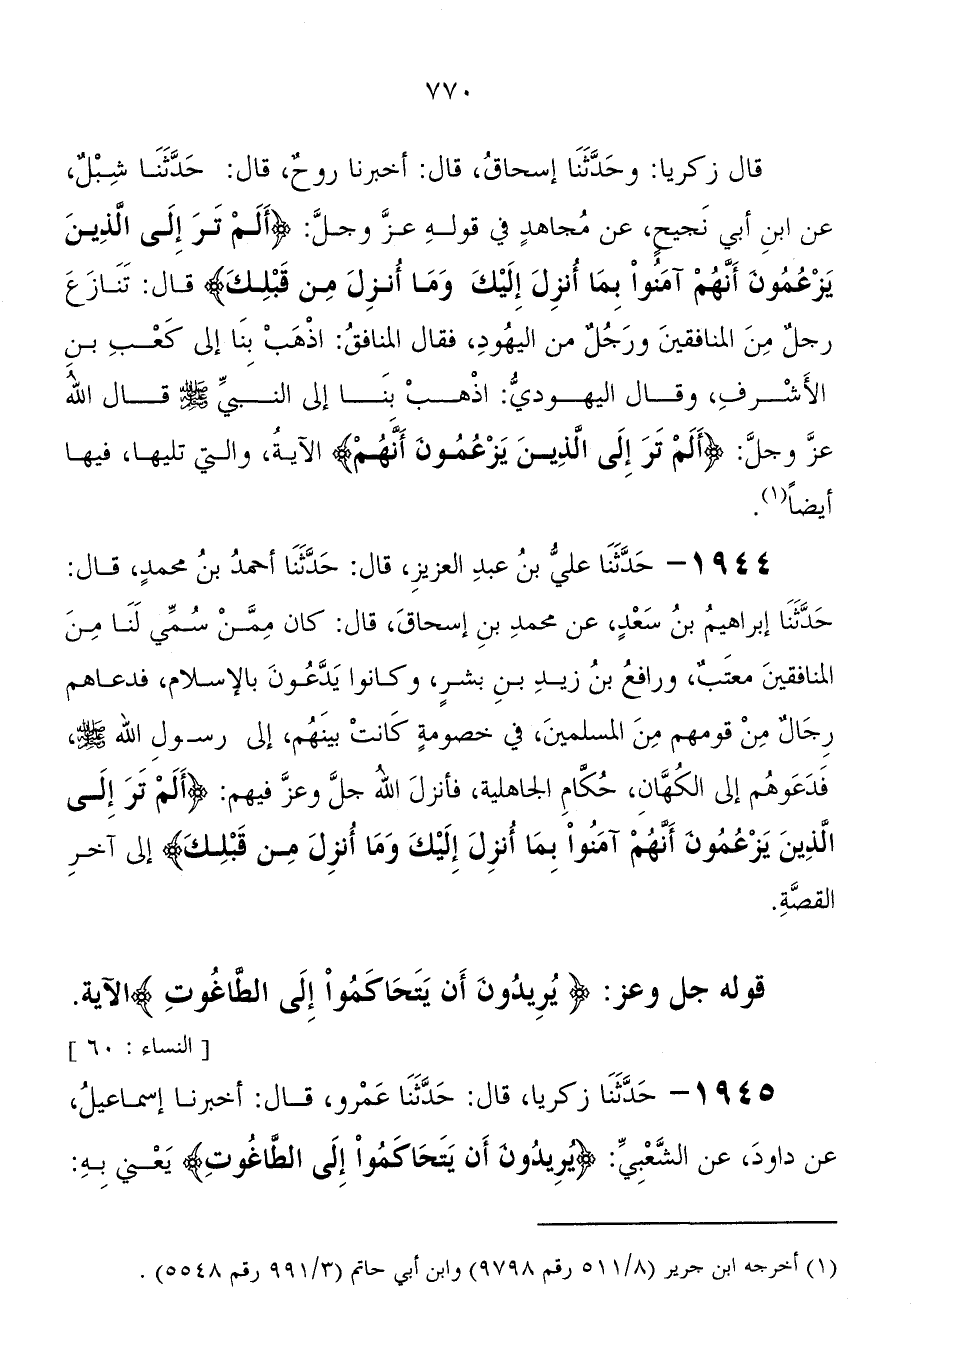 ٧٧٠
قال زكريا: وحَدَّثَنَا إسحاقُ، قال: أخبرنا روحٌ، قال: حَدَّثَنَا شِبْلٌ،
عن ابنِ أبي نَجيحٍ، عن مُجاهدٍ في قولهِ عزَّ وجلَّ: ﴿أَلَمْ تَرَ إِلَى الَّذِينَ
يَزْعُمُونَ أَنَّهُمْ آمَنُواْ بِمَا أُنزِلَ إِلَيْكَ وَمَا أُنزِلَ مِن قَبْلِكَ﴾ قال: تَنَازَعَ
رجلٌ مِنَ المنافقينَ ورَجُلٌ من اليهُودِ، فقال المنافقُ: اذْهَبْ بِنَا إلى كَعْبِ بنِ
الأَشْرفِ، وقال اليهوديُّ: اذْهبْ بِنَا إلى النبيِّ ﷺ قال اللهُ
عزَّ وجلَّ: ﴿أَلَمْ تَرَ إِلَى الَّذِينَ يَزْعُمُونَ أَنَّهُمْ﴾ الآيةُ، والتي تليها، فيها
أيضاً(١).
١٩٤٤- حَدَّثَنَا عليُّ بنُ عبدِ العزيزِ، قال: حَدَّثَنَا أحمدُ بنُ محمدٍ، قال:
حَدَّثَنَا إبراهيمُ بنُ سَعْدٍ، عن محمدِ بنِ إسحاقَ، قال: كان مِمَّنْ سُمِّي لَنَا مِنَ
المنافقينَ معتَبٌ، ورافعُ بنُ زيدِ بنِ بشرٍ، وكانوا يَدَّعُونَ بالإسلامِ، فدعاهم
رِجَالٌ مِنْ قومهم مِنَ المسلمينَ، في خصومةٍ كَانتْ بينَهُم، إلى رسولِ الله ﷺ،
فَدَعَوهُم إلى الكُهَّانِ، حُكَّامِ الجاهلية، فأنزلَ اللهُ جلَّ وعزَّ فيهم: ﴿أَلَمْ تَرَ إِلَى
الَّذِينَ يَزْعُمُونَ أَنَّهُمْ آمَنُواْ بِمَا أُنزِلَ إِلَيْكَ وَمَا أُنزِلَ مِن قَبْلِكَ﴾ إلى آخرِ
القصَّةِ.
قوله جل وعز: ﴿ يُرِيدُونَ أَن يَتَحَاكَمُواْ إِلَى الطَّاغُوتِ ﴾الآية.
[ النساء : ٦٠ ]
١٩٤٥- حَدَّثَنَا زكريا، قال: حَدَّثَنَا عَمْرو، قال: أخبرنا إسماعيلُ،
عن داودَ، عن الشَّعْبِيِّ: ﴿يُرِيدُونَ أَن يَتَحَاكَمُواْ إِلَى الطَّاغُوتِ﴾ يَعْني بهِ:
(١) أخرجه ابن جرير (٥١١/٨ رقم ٩٧٩٨) وابن أبي حاتم (٩٩١/٣ رقم ٥٥٤٨) .